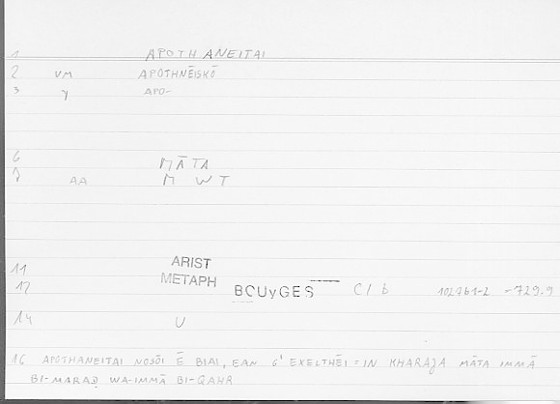 1 APOTHANEITAI
2 VM APOTHNĒISKŌ
3 y APO-
6 MĀTA
7 AA M W T
11 ARIST
12 METAPH BOUyGES C/b -729.9
14 U
16 APOTHANEITAI NOSŌI Ē BIAI, EAN G' EXELTHĒI = IN KHARAJA MĀTA IMMĀ
BI-MARAḌ WA-IMMĀ BI-QAHR